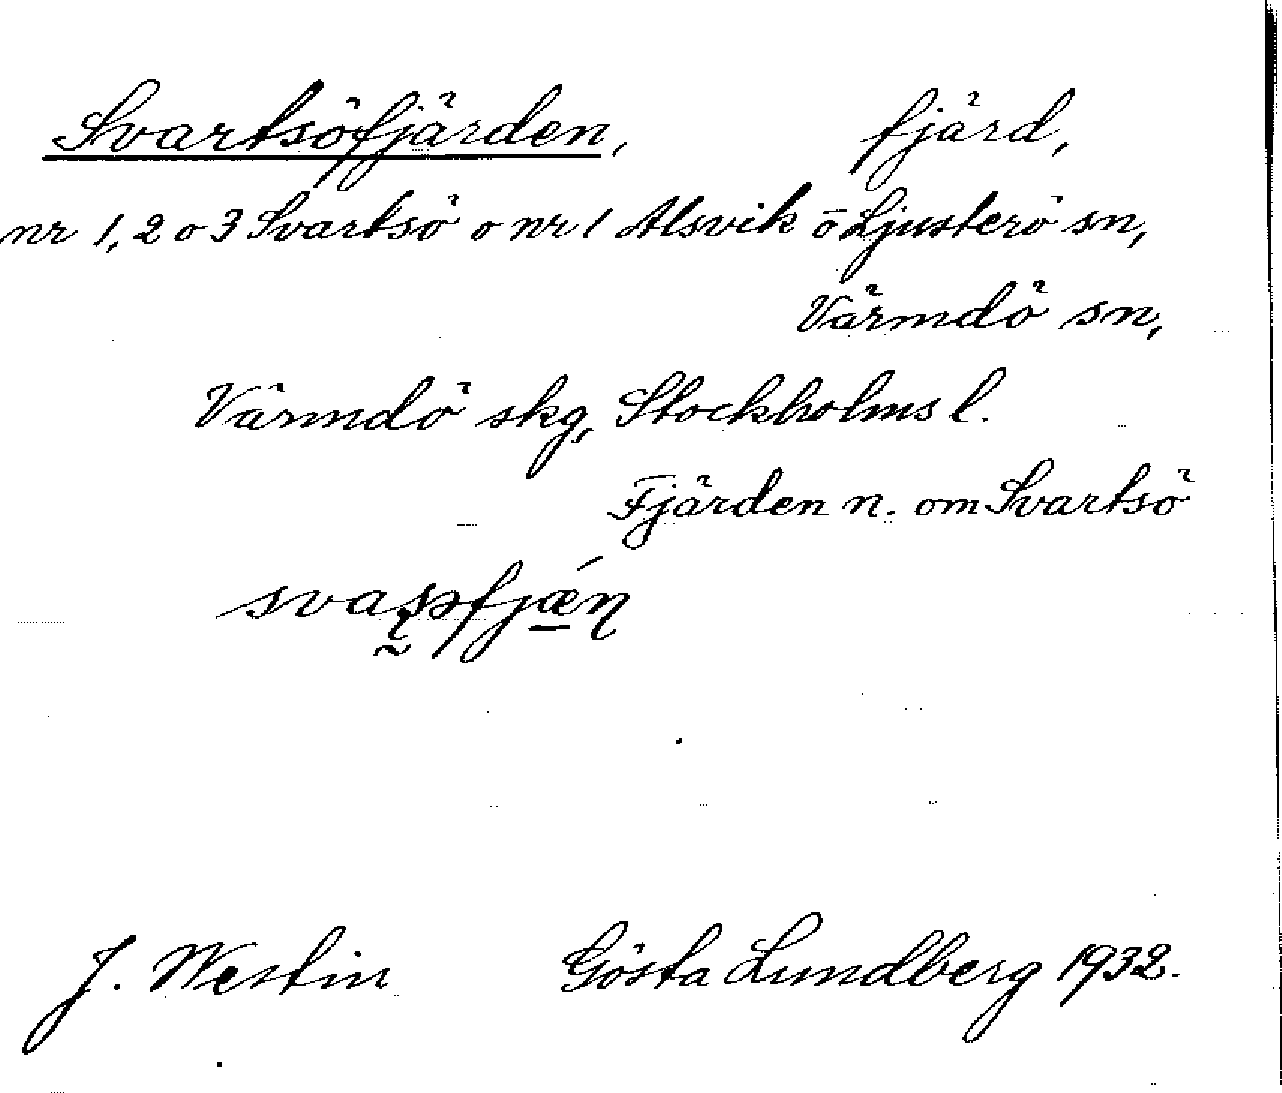 Svartsöfjärden, fjärd,
nr 1, 2 o 3 Svartsö o nr 1 Alsvik ō Ljusterö sn,
Värmdö sn,
Värmdö skg, Stockholms l.
Fjärden n. om Svartsö
J. Westin Gösta Lundberg 1932.